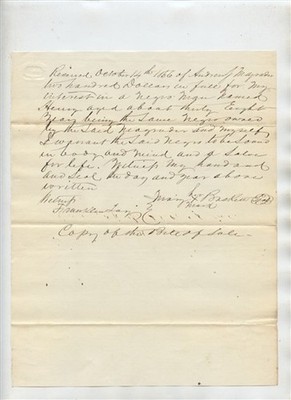 Received October 14th 1866 of Andrew
two hundred Dollars in full for my
interest in a Negro Man named
Henry aged about thirty Eight
Years being the Same Negro owned
by the Said and myself
I warrant the Said Negro to be Sound
in body and mind and a Slave
for life. Witness my hand and
and Seal the day and year above
written
Witness Mary
Franklin mark
Copy of the Bill of Sale